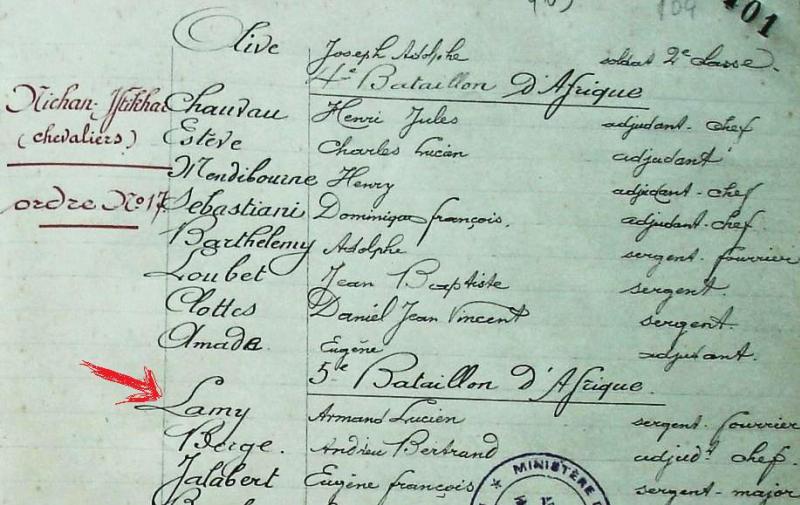 401
Olive Joseph Adolphe soldat 2e classe.
4e Bataillon d'Afrique
Nichan-Iftikhar Chauvau Henri Jules adjudant-chef
(chevaliers) Estève Charles Lucien adjudant
Mendibourne Henry adjudant-chef
ordre No 17 Sebastiani Dominique François. adjudant-chef
Barthélemy Adolphe sergent fourrier
Loubet Jean Baptiste sergent
Clottes Daniel Jean Vincent sergent.
Amade Eugène adjudant.
5e Bataillon d'Afrique.
Lamy Armand Lucien sergent fourrier
Berge. Andrieu Bertrand adjudt chef.
Jalabert Eugène François sergent-major
* MINISTÈRE